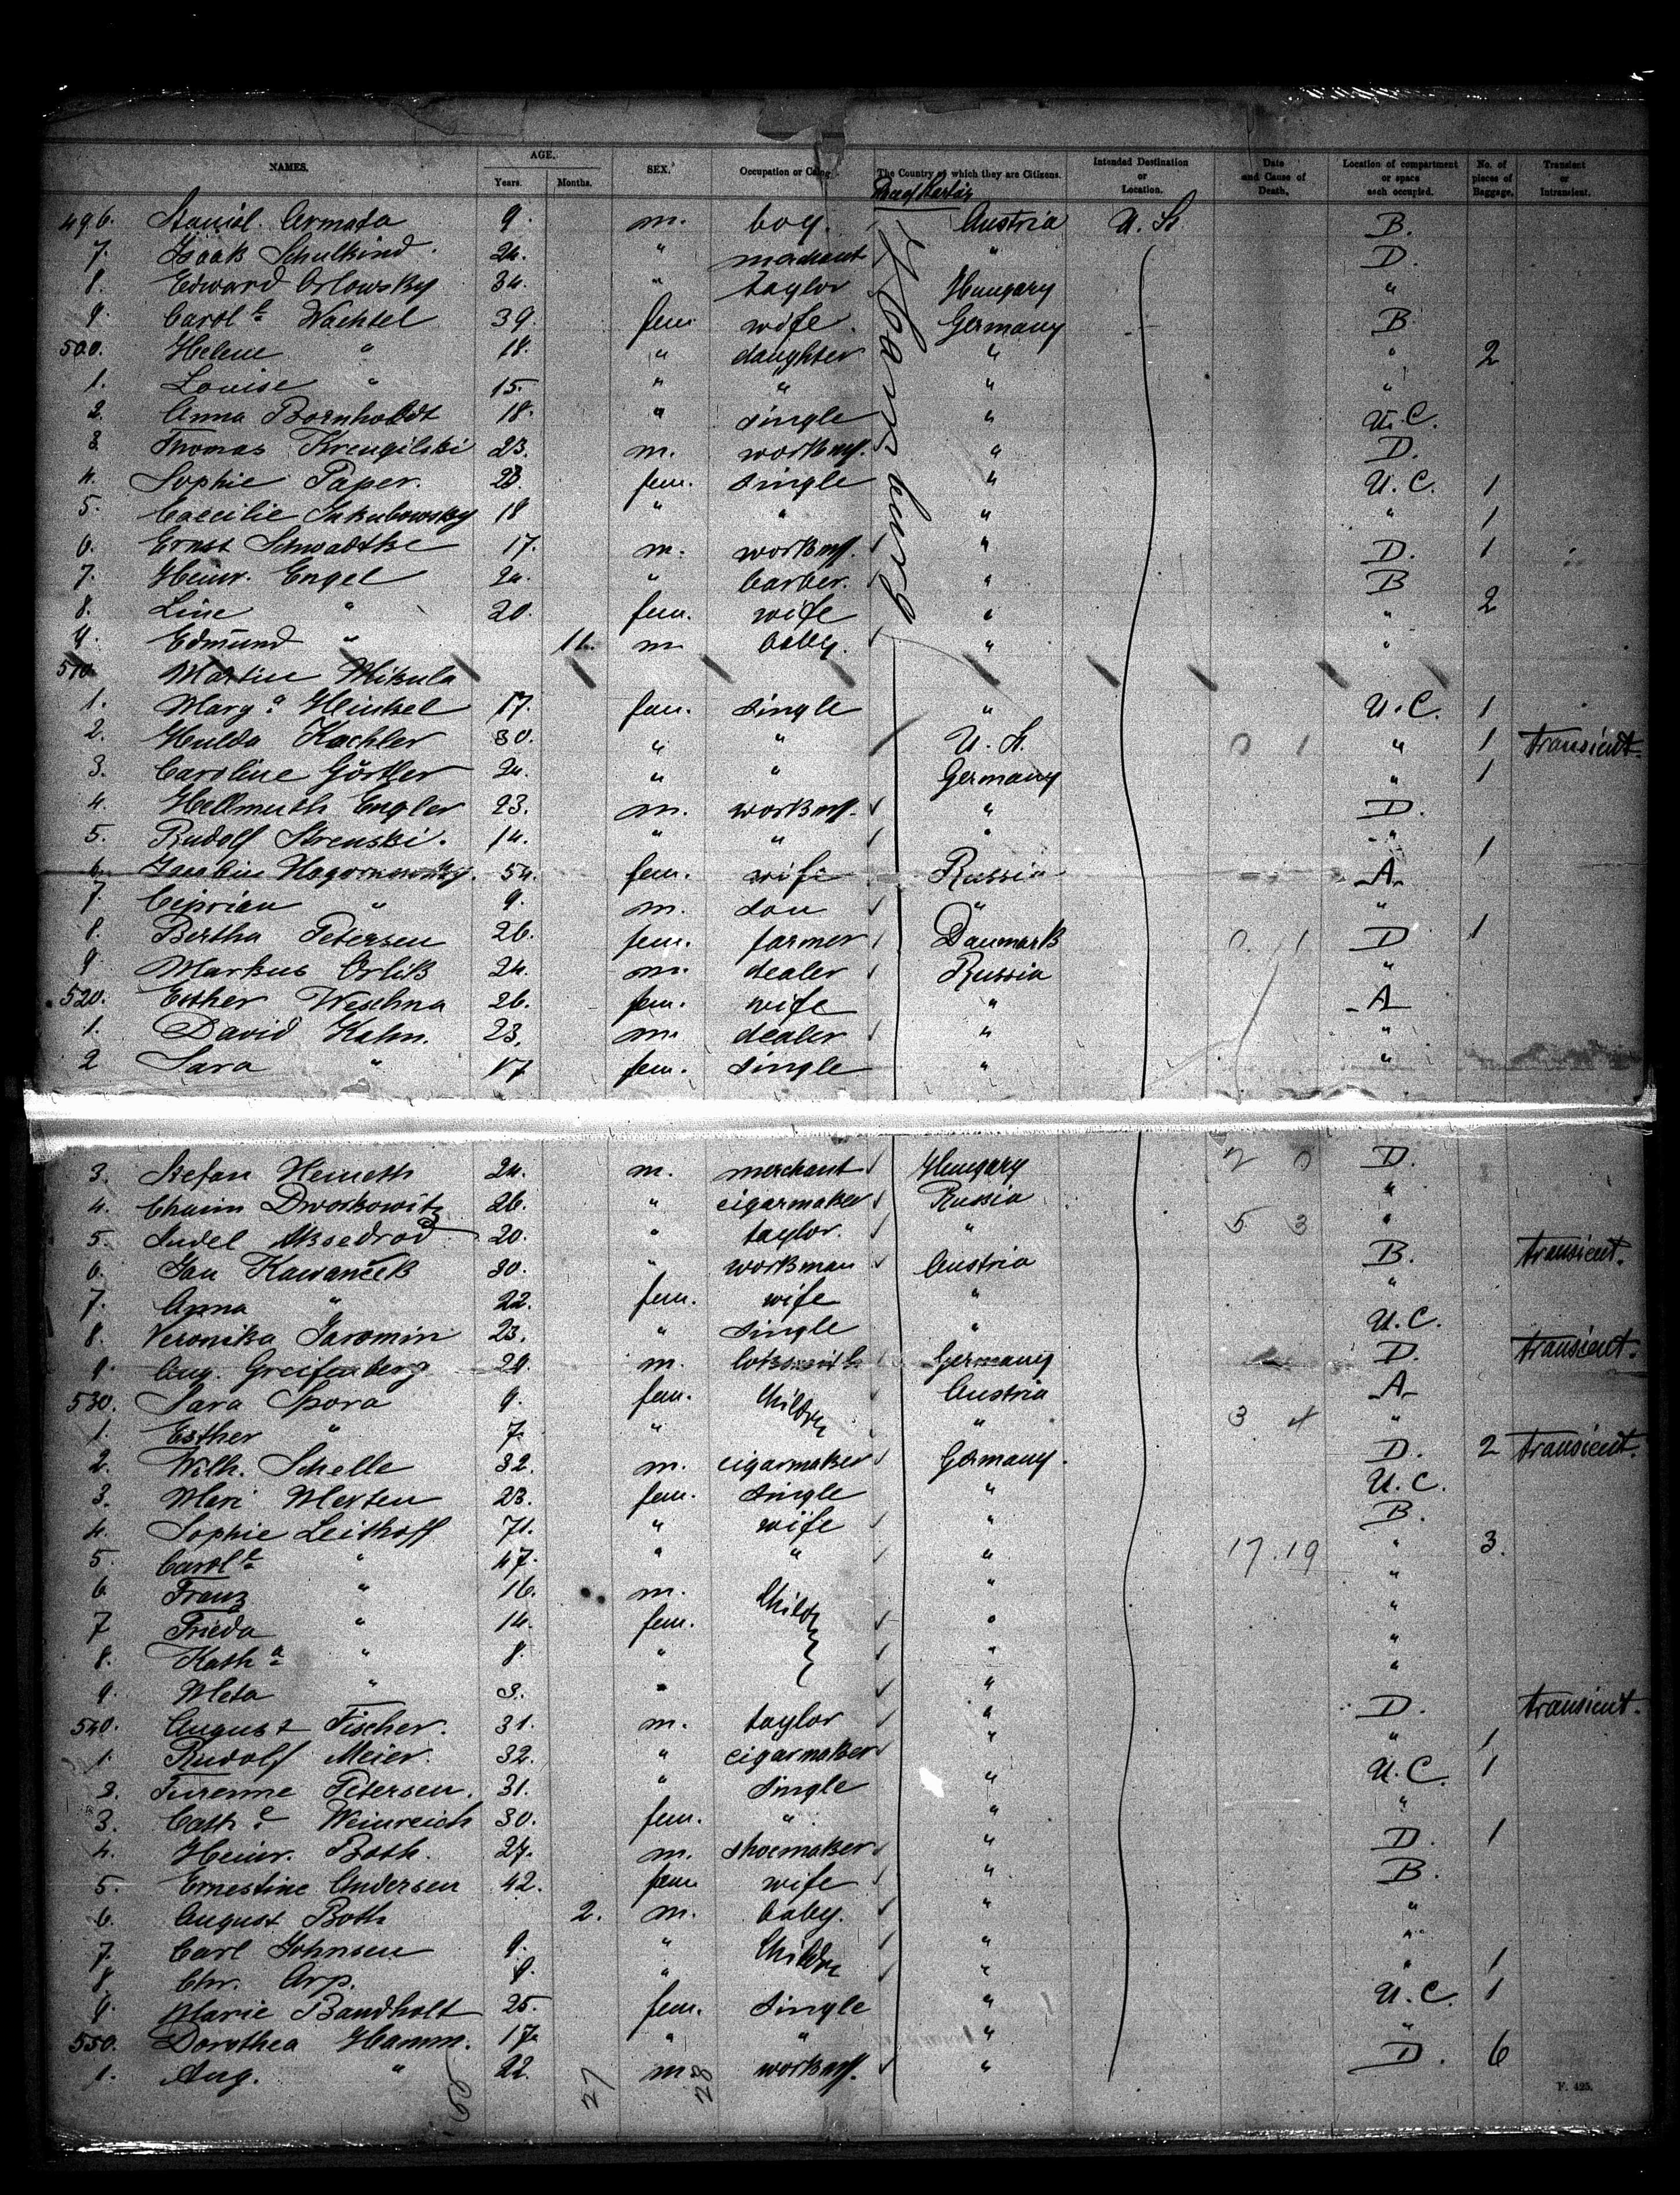 NAMES. AGE. SEX. Occupation or Calling. The Country of which they are Citizens. Intended Destination or Location. Date and Cause of Death. Location of compartment or space each occupied. No. of pieces of Baggage. Transient or Intransient.
Years. Months.
Hamburg
496. Daniel Armata 9. m. boy. Austria U. St. B.
7. Isaak Schulkind 24. " " D.
8. Edward Orlowsky 34. " taylor Hungary "
9. Carole Wachtel 39. fem. wife Germany B
500. Helene " 18. " daughter " " 2
1. Louise " 15. " " " "
2. Anna Bornholdt 18. " single " U. C.
3. Thomas 23. m. workm. " D.
4. Sophie Paper. 23. fem. single " U. C. 1
5. Caecilie Jakubowsky 18 " " " " 1
6. Ernst Schwadtke 17. m. workm. " D. 1
7. Heinr. Engel 24. " barber. " B
8. Line " 20. fem. wife " " 2
9. Edmund " 11. m baby. " "
510. Martin Mikula
1. Marga Heinkel 17. fem. single " U. C. 1
2. Hulda Kachler 30. " " U. St. 0 1 " 1 transient.
3. Caroline Görtler 24. " " Germany " 1
4. Hellmuth Engler 23. m. workm. " D.
5. Rudolf Strenski. 14. " " " " 1
6. 54. fem. wife Russia A
7. Ciprian " 9. m. son " "
8. Bertha Petersen 26. fem. farmer Danmark 0 1 D 1
9 Markus Orlik 24. m. dealer Russia "
520. Esther Weschna 26. fem. wife " A
1. David Kahn. 23. m. dealer " "
2 Sara " 17 fem. single " "
3. Stefan Nemeth 24. m. merchant Hungary 2 0 D.
4. Chaim Dworkowitz 26. " cigarmaker Russia "
5. Judel Aksedrod 20. " taylor. " 5 3 "
6. Jan Kawančik 30. " workman Austria B. transient.
7. Anna " 22. fem. wife " "
8. Veronika Jaromin 23. " single " U. C.
9. Aug. Greifenberg 29. m. loksmith Germany D. transient.
530. Sara Spora 9. fem. Childr Austria A
1. Esther " 7. " " 3 4 "
2. Wilh. Schelle 32. m. cigarmaker Germany. D. 2 transient.
3. Meri Mexten 23. fem. single " U. C.
4. Sophie Leithoff 71. " wife " B.
5. Carole " 47. " " " 17. 19 " 3.
6. Franz " 16. m. Childr " "
7 Frieda " 14. fem. " "
8. Katha " 8. " " "
9. Meta " 3. " " "
540. August Fischer. 31. m. taylor " D. transient.
1. Rudolf Meier. 32. " cigarmaker " " 1
2. Petersen. 31. " single " U. C. 1
3. Cathe Weinreich 30. fem. " " "
4. Heinr. Both. 27. m. shoemaker " D. 1
5. Ernestine Andersen 42. fem wife " B.
6. August Both 2. m. baby. " "
7. Carl Johnsen 9. " Childr " "
8. Chr. Arp. 8. " " " 1
9. Marie Bandholt 25. fem. single " U. C. 1
550. Dorothea Hamm. 17. " " " "
1. Aug. " 22. m workm. " D. 6
55 27 28
F. 425.